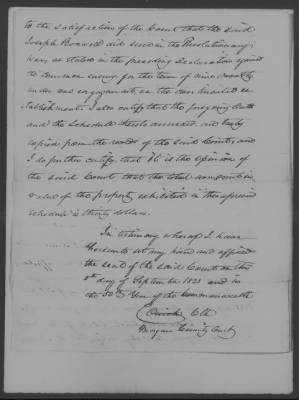 to the satisfaction of the Court that the said
Joseph did serve in the Revolutionary
War, as stated in the preceding declaration against
the common enemy for the term of nine months
under one engagement, on the continental es
tablishment. I also certify that the foregoing oath
and the schedule thereto annexed, are truly
copied from the record of the said County, and
I do further certify that it is the opinion of
the said Court that the total amount in
value of the property exhibited in the aforesaid
schedule is thirty dollars.
In testimony whereof I have
hereunto set my hand and affixed
the seal of the said Court on this
day of September 1823 and in
the Year of the Commonwealth
Clk
Morgan County Court